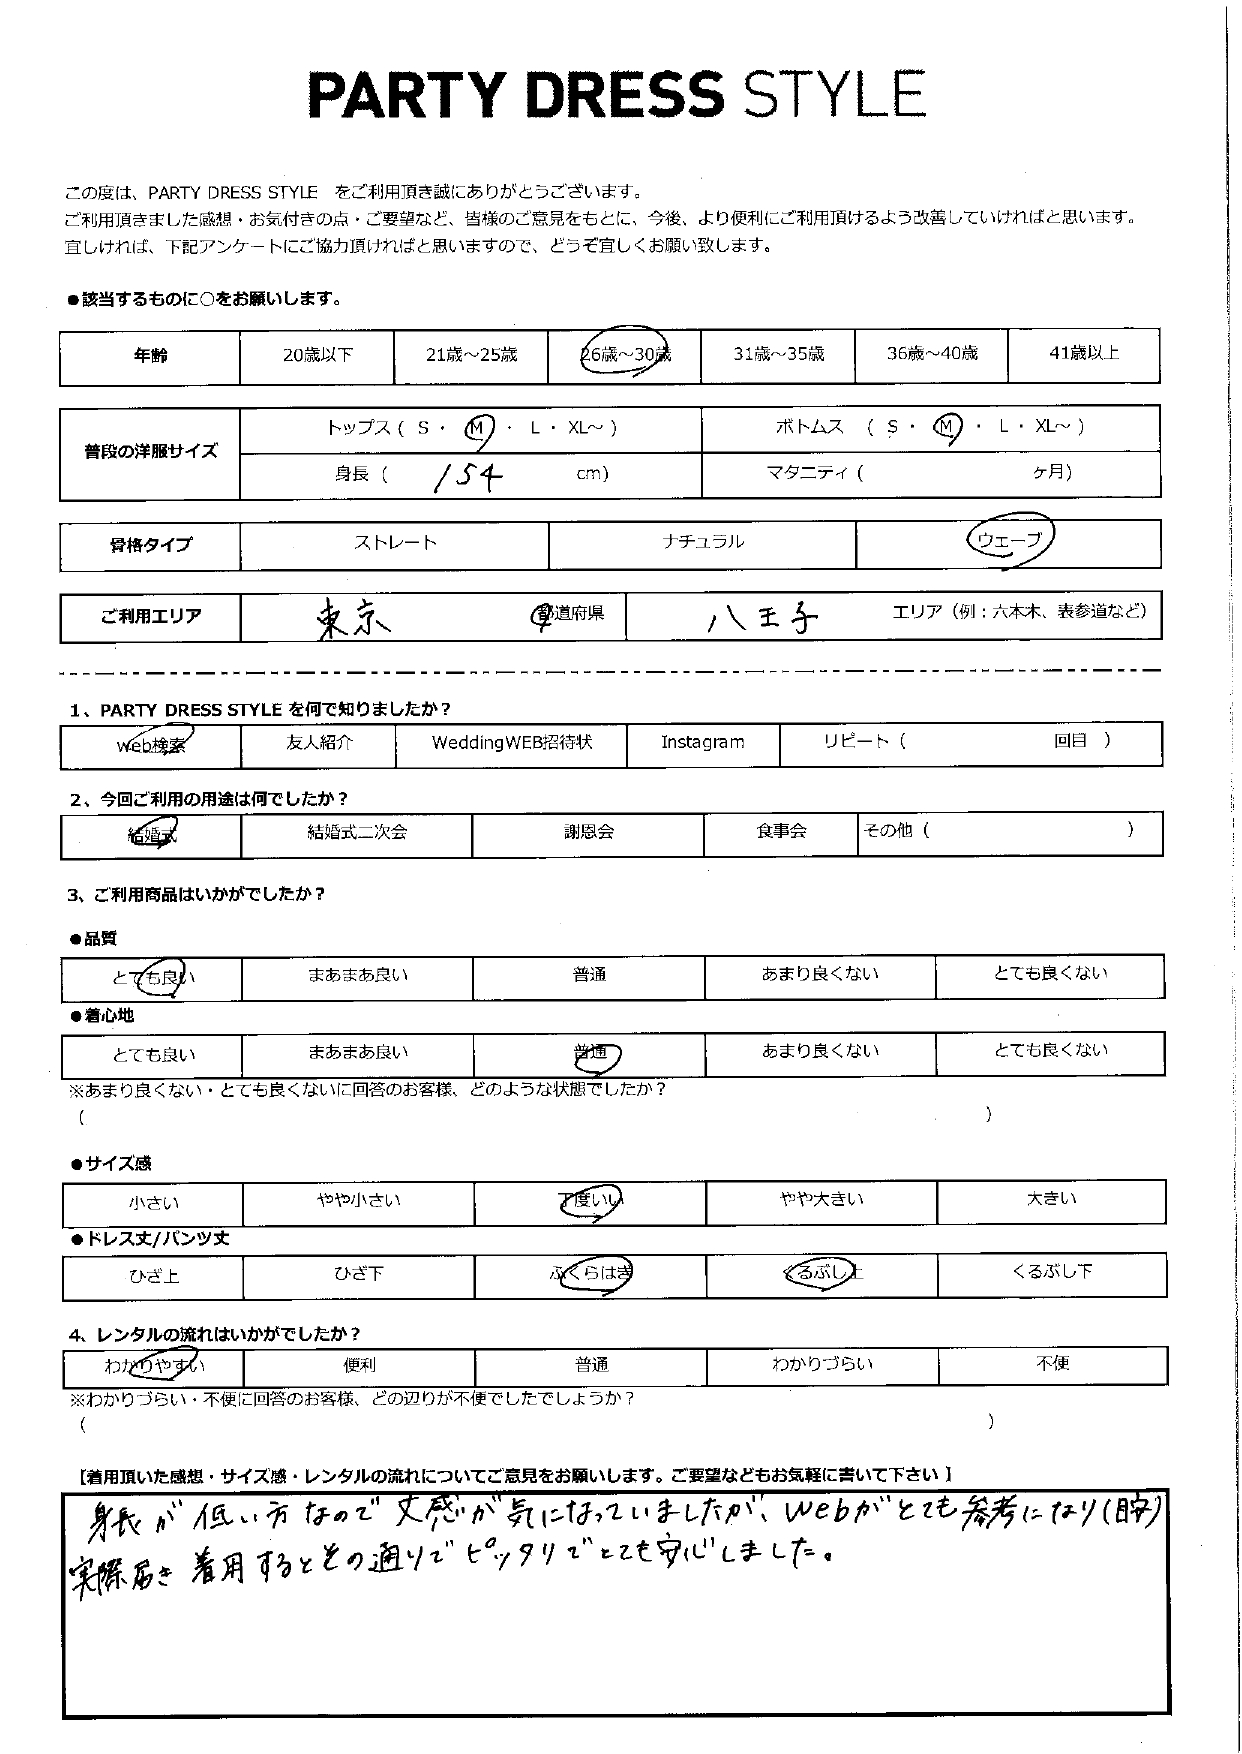 PARTY DRESS STYLE
この度は、PARTY DRESS STYLE をご利用頂き誠にありがとうございます。
ご利用頂きました感想・お気付きの点・ご要望など、皆様のご意見をもとに、今後、より便利にご利用頂けるよう改善していければと思います。
宜しければ、下記アンケートにご協力頂ければと思いますので、どうぞ宜しくお願い致します。
●該当するものに○をお願いします。
年齢 20歳以下 21歳～25歳 26歳～30歳 31歳～35歳 36歳～40歳 41歳以上
普段の洋服サイズ トップス ( S ・ M ・ L ・ XL～ ) ボトムス ( S ・ M ・ L ・ XL～ )
身長 ( 154 cm) マタニティ ( ヶ月)
骨格タイプ ストレート ナチュラル ウェーブ
ご利用エリア 東京 都道府県 八王子 エリア（例：六本木、表参道など）
1、PARTY DRESS STYLE を何で知りましたか？
web検索 友人紹介 WeddingWEB招待状 Instagram リピート ( 回目 )
2、今回ご利用の用途は何でしたか？
結婚式 結婚式二次会 謝恩会 食事会 その他 ( )
3、ご利用商品はいかがでしたか？
●品質
とても良い まあまあ良い 普通 あまり良くない とても良くない
●着心地
とても良い まあまあ良い 普通 あまり良くない とても良くない
※あまり良くない・とても良くないに回答のお客様、どのような状態でしたか？
( )
●サイズ感
小さい やや小さい 丁度いい やや大きい 大きい
●ドレス丈/パンツ丈
ひざ上 ひざ下 ふくらはぎ くるぶし上 くるぶし下
4、レンタルの流れはいかがでしたか？
わかりやすい 便利 普通 わかりづらい 不便
※わかりづらい・不便に回答のお客様、どの辺りが不便でしたでしょうか？
( )
【着用頂いた感想・サイズ感・レンタルの流れについてご意見をお願いします。ご要望などもお気軽に書いて下さい】
身長が低い方なので丈感が気になっていましたが、webがとても参考になり
実際届き着用するとその通りでピッタリでとても安心しました。